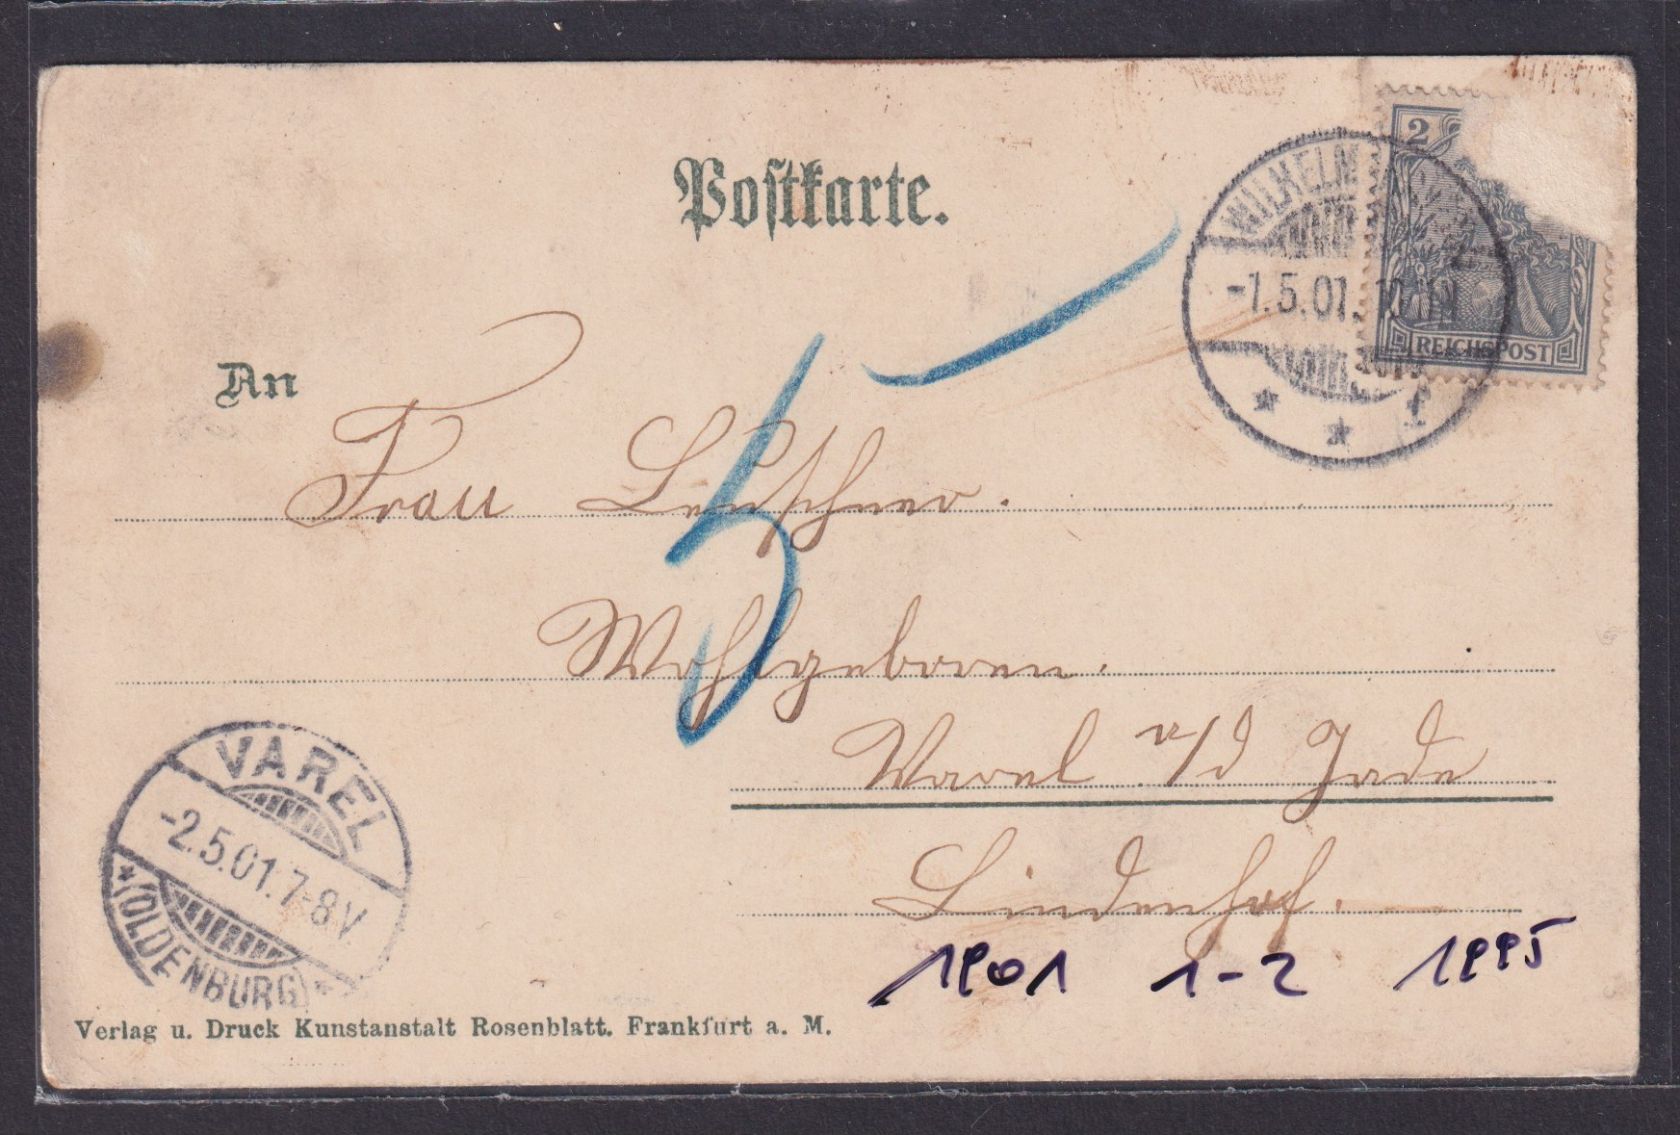 Postkarte.
2
REICHSPOST
WILHELM
-1.5.01.
* * f
An
5
Frau Leuschner.
Wohlgeboren.
Varel a/d Jade
Lindenhof.
VAREL
-2.5.01.7-8V.
*(OLDENBURG)*
1901 1-2 1995
Verlag u. Druck Kunstanstalt Rosenblatt. Frankfurt a. M.